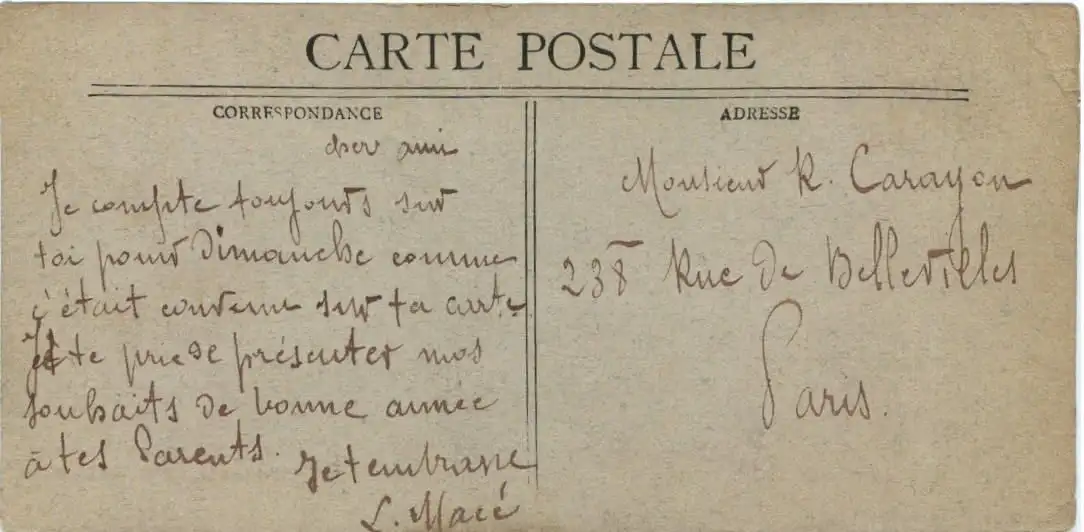 CARTE POSTALE
CORRESPONDANCE
cher ami
Je compte toujours sur
toi pour Dimanche comme
c'était convenu sur ta carte
Je te prie de présenter mes
souhaits de bonne année
à tes Parents. Je t'embrasse
L. Macé
ADRESSE
Monsieur R. Carayon
238 Rue de Bellevilles
Paris.